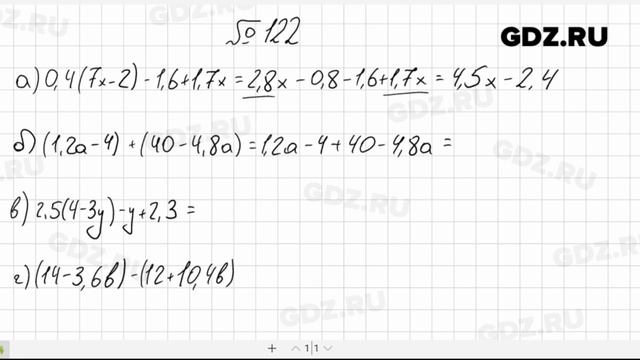 № 122
GDZ.RU
а) 0,4(7x-2) - 1,6+1,7x = 2,8x - 0,8 - 1,6+1,7x = 4,5x - 2,4
б) (1,2a-4) + (40-4,8a) = 1,2a - 4 + 40 - 4,8a =
в) 2,5(4-3y) - y + 2,3 =
г) (14-3,6в) - (12+10,4в)
GDZ.RU
GDZ.RU
GDZ.RU
GDZ.RU
GDZ.RU
GDZ.RU
GDZ.RU
+ 1|1